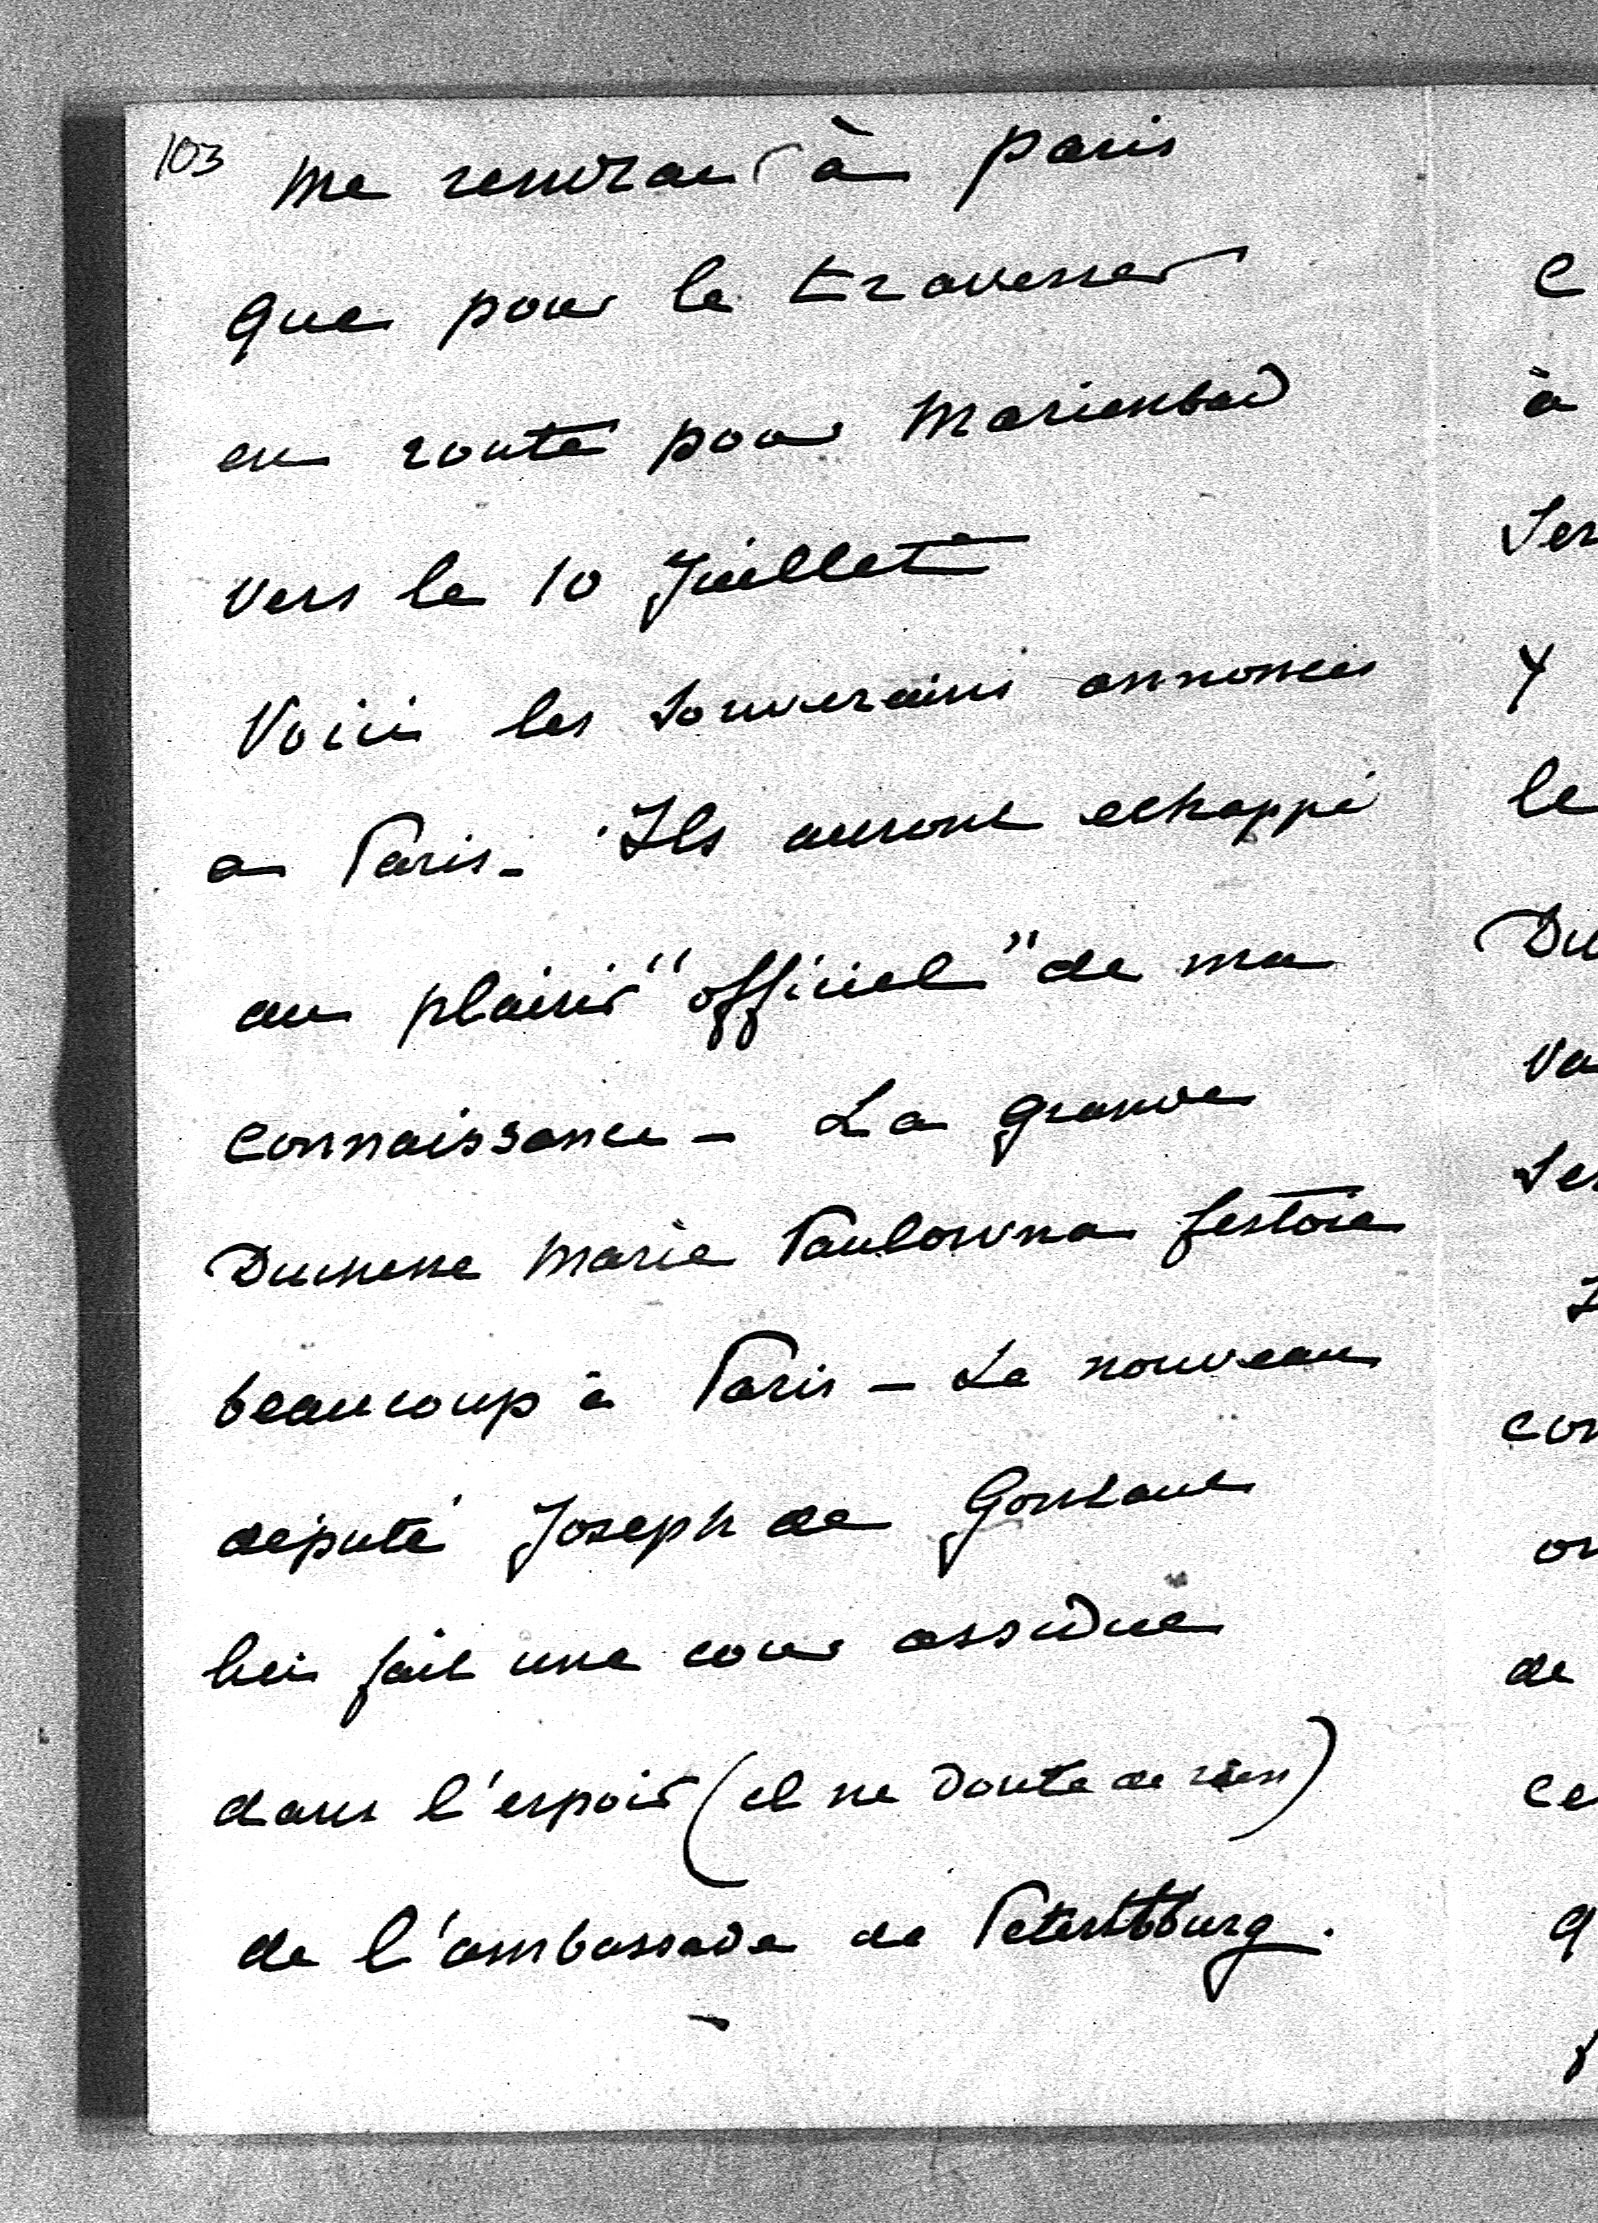 103
me rendrai à paris
que pour le traverser
en route pour Marienbad
vers le 10 Juillet
Voici les souverains annoncés
a Paris - Ils auront echappé
au plaisir "officiel" de ma
connaissance - La grande
Duchesse Marie Paulowna festoie
beaucoup à Paris - Le nouveau
député Joseph de Gontaut
lui fait une cour assidue
dans l'espoir (il ne doute de rien)
de l'ambassade de Petersbourg.
C
à
Ser
Y
le
Du
Va
Ser
con
on
de
ce
q